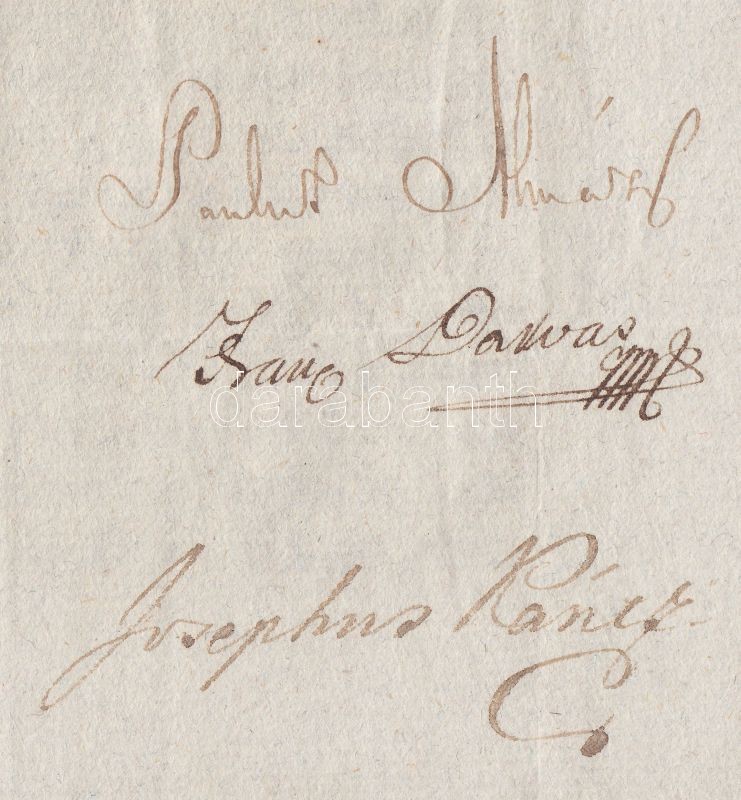 Paulus Almásy
Franc Darvas
darabanth
Josephus Ráncz